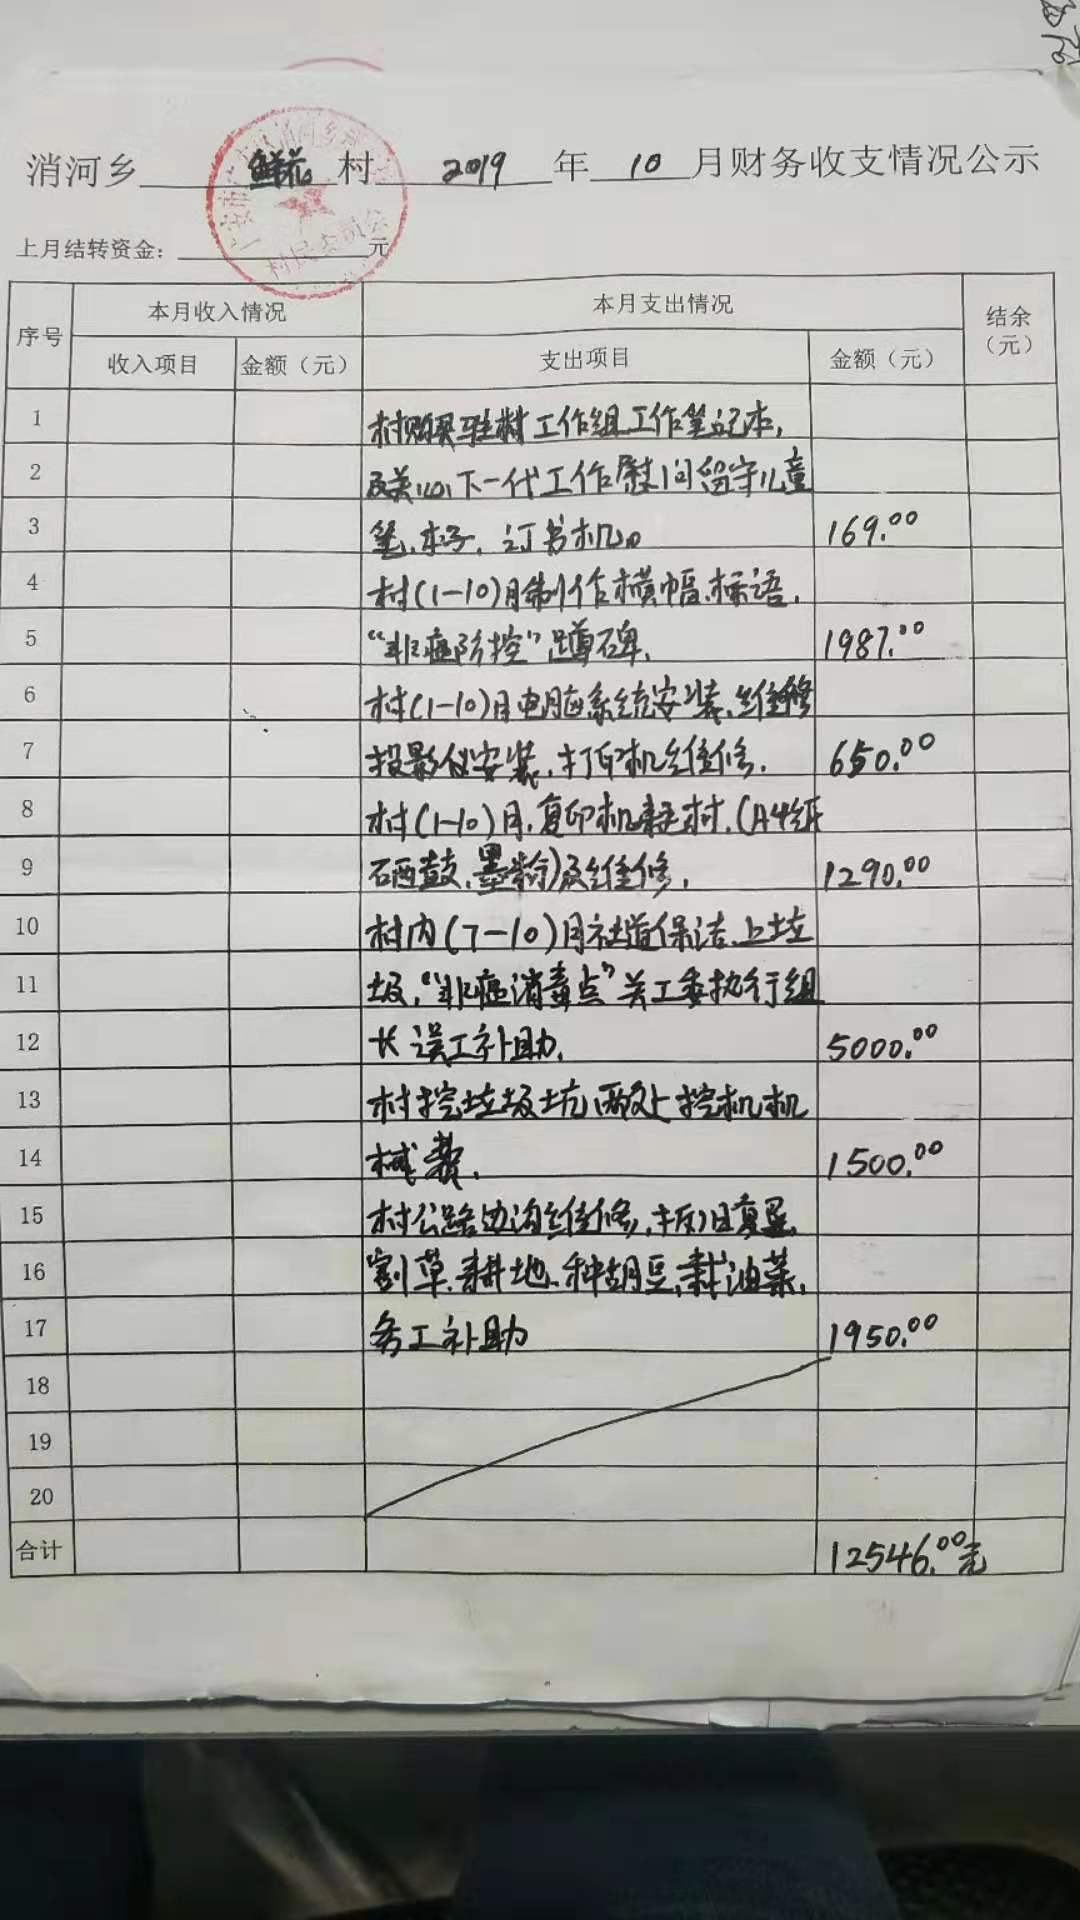 消河乡 鲜花 村 2019 年 10 月财务收支情况公示
上月结转资金： 元
村民委员会
序号 本月收入情况 本月支出情况 结余（元）
收入项目 金额（元） 支出项目 金额（元）
1 村购买驻村工作组工作笔记本，
2 及关心下一代工作慰问留守儿童
3 笔、本子，订书机。 169.00
4 村(1-10)月制作横幅、标语，
5 “非瘟防控” 碑， 1987.00
6 村(1-10)月电脑系统安装、维修
7 投影仪安装，打印机维修， 650.00
8 村(1-10)月，复印机耗材，(A4纸
9 硒鼓，墨粉)及维修， 1290.00
10 村内(7-10)月社道保洁、上垃
11 圾，“非瘟消毒点”关工委执行组
12 长误工补助， 5000.00
13 村挖垃圾坑两处挖机机
14 械费， 1500.00
15 村公路边沟维修，拆旧复垦，
16 割草、耕地、种胡豆，栽油菜，
17 务工补助 1950.00
18
19
20
合计 12546.00元